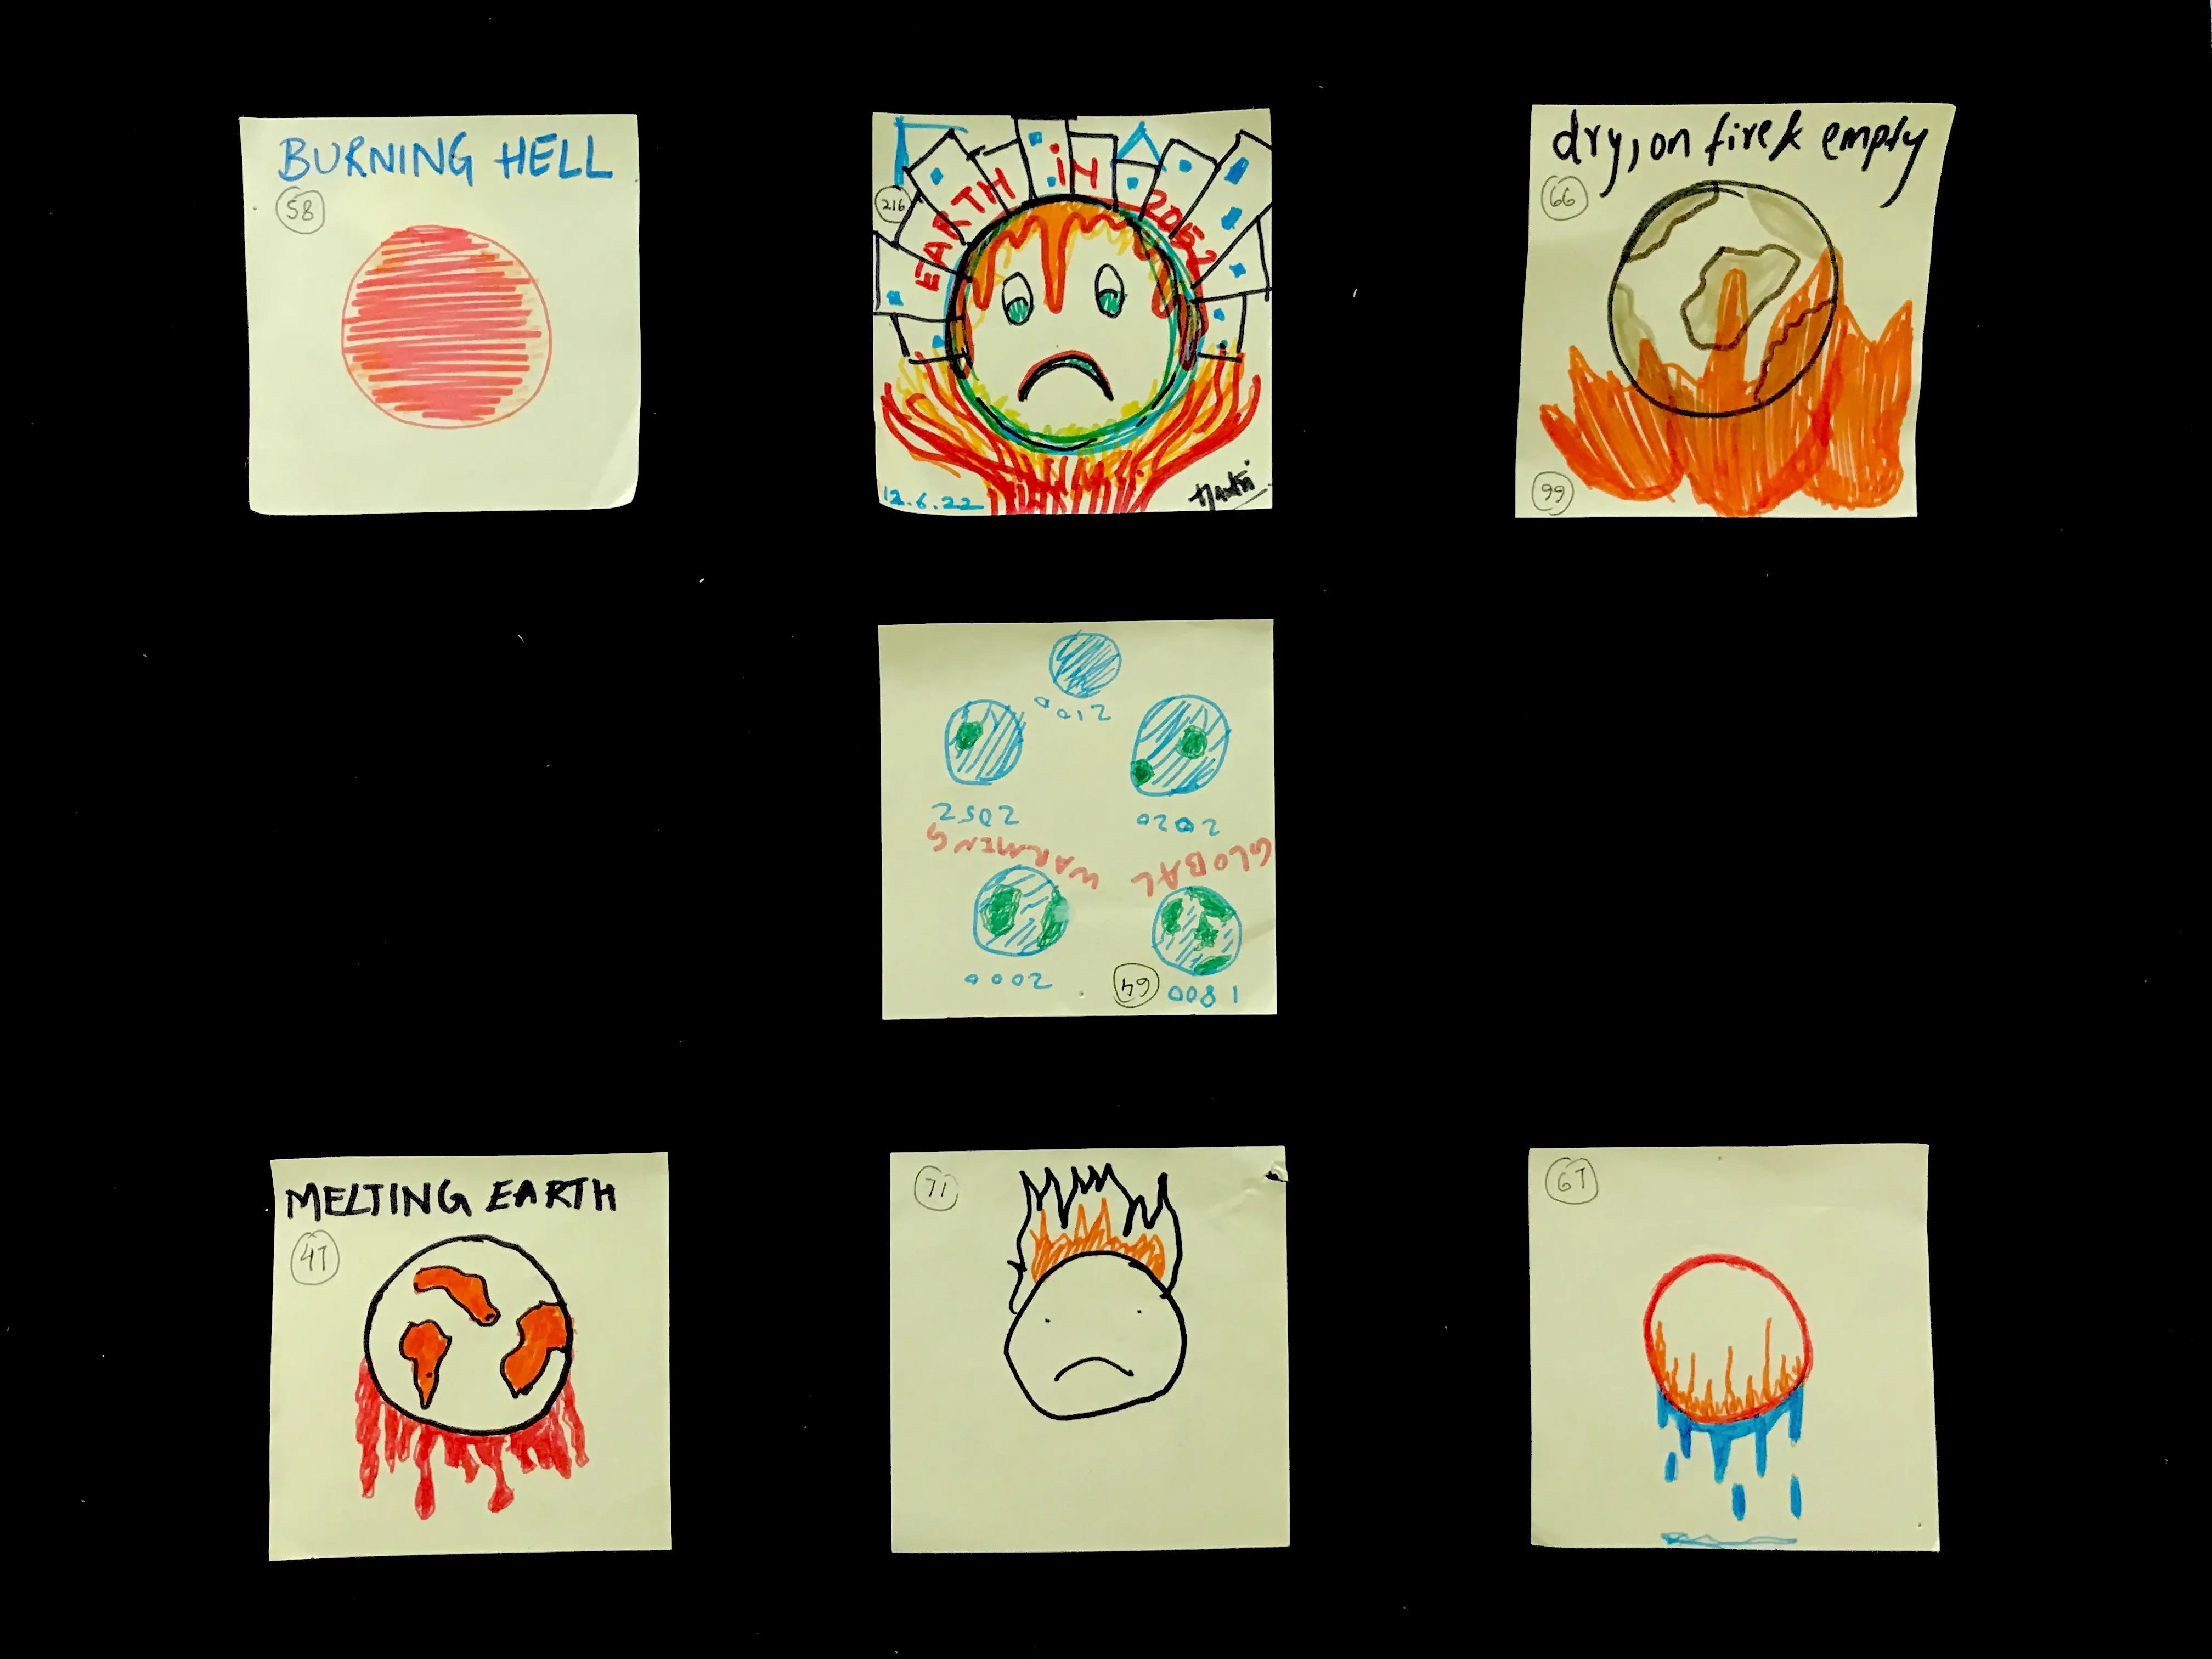 BURNING HELL
58
EARTH IN 2052
216
12.6.22
dry, on fire & empty
66
99
1800
64
2000
GLOBAL WARMING
2020
2052
2100
MELTING EARTH
47
71
67